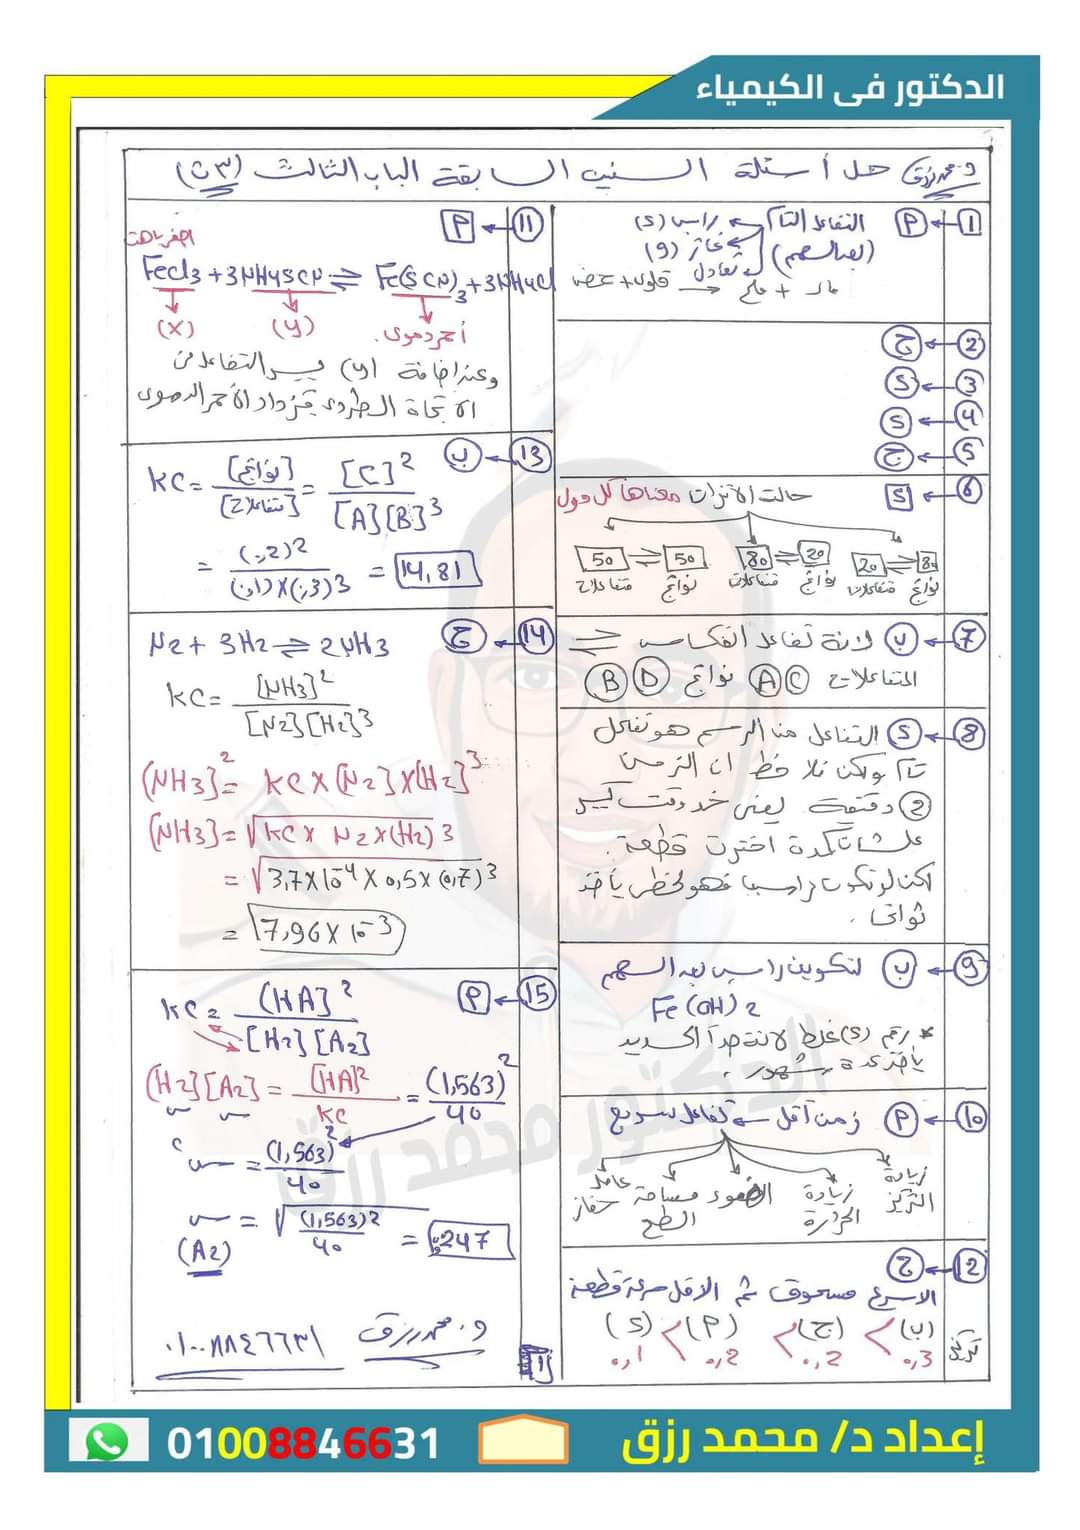 الدكتور فى الكيمياء
د. محمد رزق حل أسئلة السنين السابقة الباب الثالث (ث٣)
1 ← P التفاعل التام ← راسب (s)
(بعد السهم) غاز (g)
تعادل
حمض + قلوى → ملح + ماء
2 ← ج
3 ← s
4 ← s
5 ← ج
6 ← s حالة الاتزان معناها كل دول
50 ⇌ 50 80 ⇌ 20 20 ⇌ 80
متفاعلات نواتج متفاعلات نواتج متفاعلات نواتج
7 ← ب لانه تفاعل انعكاسى ⇌
المتفاعلات A C نواتج D B
8 ← s التفاعل من الرسم هو تفاعل
تام ولكن نلاحظ ان الزمن
2 دقيقة يعنى خد وقت كبير
علشان كدة اخترت قطعة.
لكن لو تكون راسب فهو لحظى يأخذ
ثوانى.
9 ← ب لتكوين راسب بعد السهم
Fe(OH)2
* رقم (s) غلط لانه صدأ الحديد
يأخذ عدة شهور.
10 ← P زمن أقل ← تفاعل سريع
زيادة التركيز
زيادة الحرارة
الضوء
مساحة السطح
عامل حفاز
12 ← ج
الاسرع مسحوق ثم الاقل سرعة قطعة
تركيز (ب) > (ج) > (P) > (s)
0,3 0,2 0,2 0,1
11 ← P
اصفر باهت
FeCl3 + 3NH4SCN ⇌ Fe(SCN)3 + 3NH4Cl
(X) (Y) أحمر دموى.
وعند إضافة (y) يسير التفاعل فى
الاتجاة الطردى فيزداد الأحمر الدموى
13 ← ب
KC = [نواتج] / [متفاعلات] = [C]2 / [A][B]3
= (0,2)2 / (0,1)×(0,3)3 = 14,81
14 ← ج
N2 + 3H2 ⇌ 2NH3
KC = [NH3]2 / [N2][H2]3
(NH3)2 = KC × [N2] × [H2]3
(NH3) = √KC × N2 × (H2)3
= √3,7×10-4 × 0,5 × (0,7)3
= 7,96 × 10-3
15 ← P
KC = (HA)2 / [H2][A2]
[H2][A2] = [HA]2 / KC = (1,563)2 / 40
س2 = (1,563)2 / 40
س = √(1,563)2 / 40 = 0.247
(A2)
د. محمد رزق ٠١٠٠٨٨٤٦٦٣١
1
الدكتور محمد رزق
01008846631
إعداد د/ محمد رزق